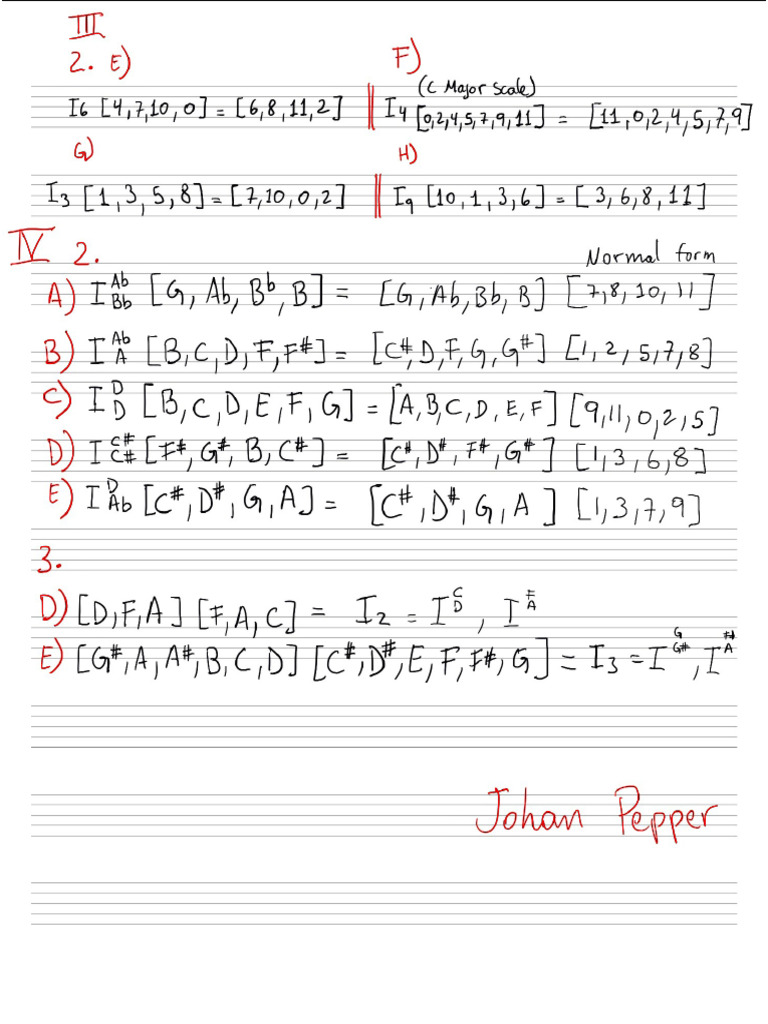 III
2. E) F)
(C Major Scale)
I6 [4,7,10,0] = [6,8,11,2] I4 [0,2,4,5,7,9,11] = [11,0,2,4,5,7,9]
G) H)
I3 [1,3,5,8] = [7,10,0,2] I9 [10,1,3,6] = [3,6,8,11]
IV 2. Normal form
A) I Ab Bb [G, Ab, Bb, B] = [G, Ab, Bb, B] [7,8,10,11]
B) I Ab A [B, C, D, F, F#] = [C#, D, F, G, G#] [1,2,5,7,8]
C) I D D [B, C, D, E, F, G] = [A, B, C, D, E, F] [9,11,0,2,5]
D) I C# C# [F#, G#, B, C#] = [C#, D#, F#, G#] [1,3,6,8]
E) I D Ab [C#, D#, G, A] = [C#, D#, G, A] [1,3,7,9]
3.
D) [D,F,A] [F,A,C] = I2 = I C D, I F A
E) [G#, A, A#, B, C, D] [C#, D#, E, F, F#, G] = I3 = I G G#, I F# A
Johan Pepper